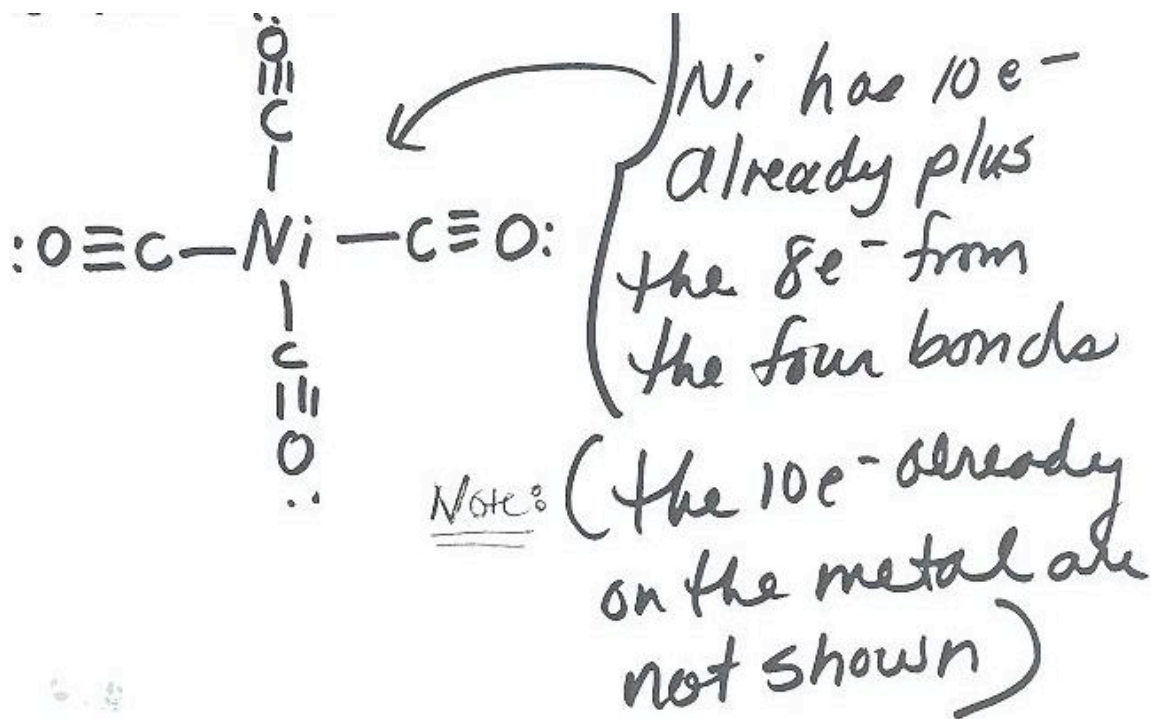 :Ö:
|||
C
|
:O≡C—Ni—C≡O:
|
C
|||
O
..
Ni has 10 e-
already plus
the 8e- from
the four bonds
Note: (the 10e- already
on the metal are
not shown)